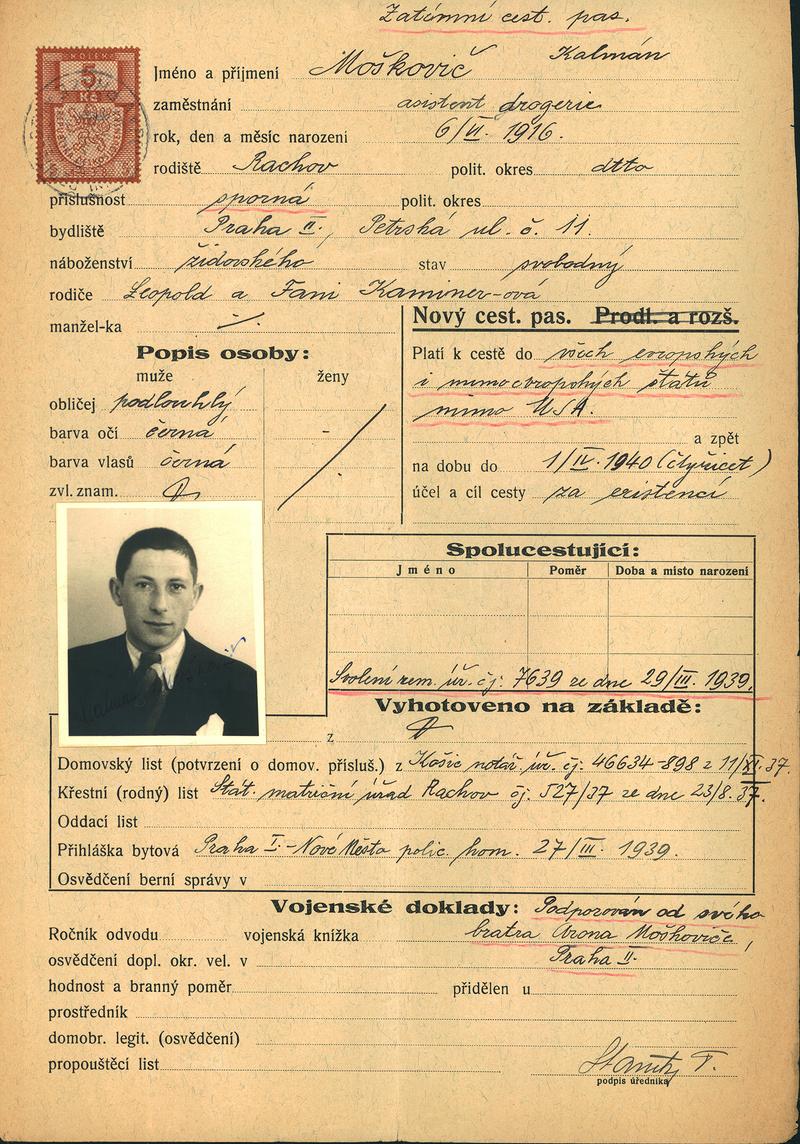 Zatímní cest. pas.
KOLEK
5
Kč
Jméno a příjmení Moškovič Kalmán
zaměstnání asistent drogerie
rok, den a měsíc narození 6/VI. 1916.
rodiště Rachov polit. okres dtto
příslušnost sporná polit. okres
bydliště Praha II., Petrská ul. č. 11.
náboženství židovského stav svobodný
rodiče Leopold a Fani Kaminer-ová
manžel-ka ·/.
Nový cest. pas. Prodl. a rozš.
Popis osoby:
muže ženy
obličej podlouhlý
barva očí černá -
barva vlasů černá
zvl. znam.
Platí k cestě do všech evropských
i mimoevropských států
mimo USA.
a zpět
na dobu do 1/IV. 1940 (čtyřicet)
účel a cíl cesty za existencí
Spolucestující:
Jméno Poměr Doba a místo narození
Svolení zem. úř. čj. 7639 ze dne 29/III. 1939.
Vyhotoveno na základě:
z
Domovský list (potvrzení o domov. přísluš.) z Košic notář. úř. čj: 46634-898 z 11/XI. 37.
Křestní (rodný) list Stát. matriční úřad Rachov čj. 527/37 ze dne 23/8. 37.
Oddací list
Přihláška bytová Praha I.-Nové Město polic. kom. 27/III. 1939.
Osvědčení berní správy v
Vojenské doklady: Podporován od svého
Ročník odvodu vojenská knížka bratra Arona Moškoviče,
osvědčení dopl. okr. vel. v Praha II.
hodnost a branný poměr přidělen u
prostředník
domobr. legit. (osvědčení)
propouštěcí list
podpis úředníka